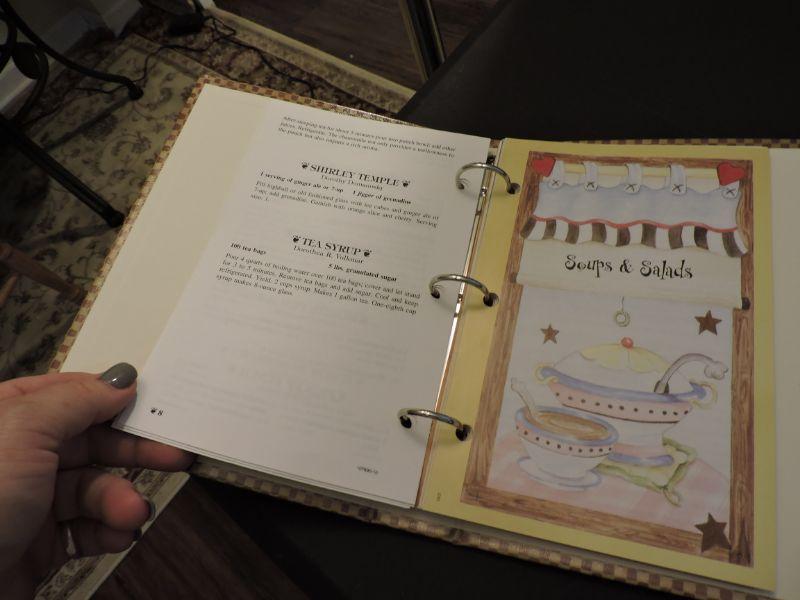 After steeping tea for about 5 minutes pour into punch bowl; add other
juices. Refrigerate. The chamomile tea not only provides a mellowness to
the punch but also imparts a rich aroma.
SHIRLEY TEMPLE
Dorothy
1 serving of ginger ale or 7-up 1 jigger of grenadine
Fill highball or old fashioned glass with ice cubes and ginger ale or
7-up; add grenadine. Garnish with orange slice and cherry. Serving
size: 1.
TEA SYRUP
Dorothea R. Volkmar
105 tea bags 5 lbs. granulated sugar
Pour 4 quarts of boiling water over 105 tea bags; cover and let stand
for 3 to 5 minutes. Remove tea bags and add sugar. Cool and keep
refrigerated. Yield: 2 cups syrup. Makes 1 gallon tea. One-eighth cup
syrup makes 8-ounce glass.
8
Soups & Salads